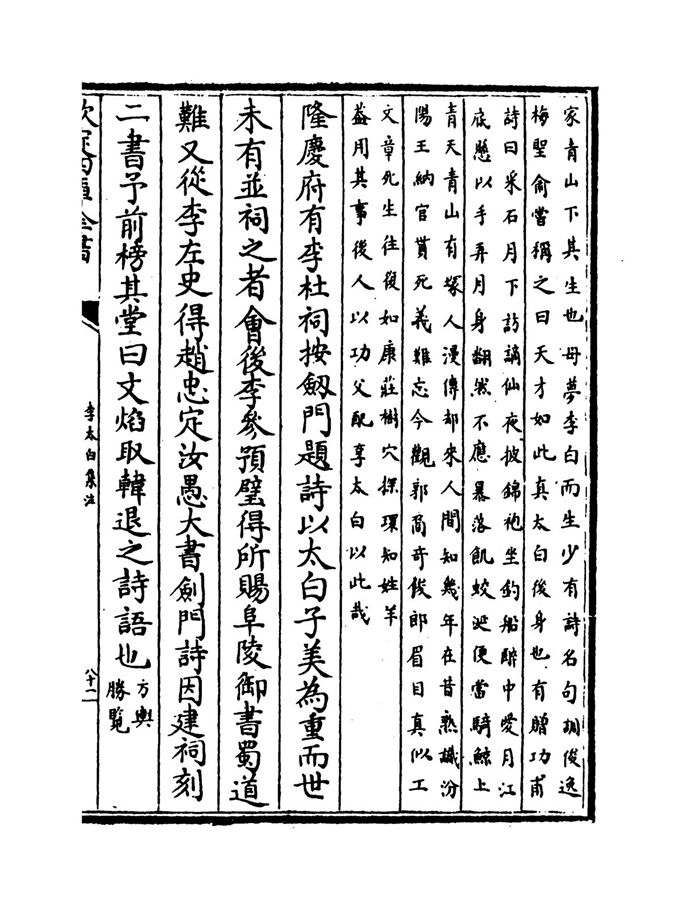 家青山下其生也母夢李白而生少有詩名句調俊逸
梅聖俞嘗稱之曰天才如此真太白後身也有贈功甫
詩曰采石月下訪謫仙夜披錦袍坐釣船醉中愛月江
底懸以手弄月身翻然不應暴落飢蛟涎便當騎鯨上
青天青山有塚人漫傳却來人間知幾年在昔熟識汾
陽王納官貰死義難忘今觀郭裔奇俊郎眉目真似工
文章死生往復如康莊樹穴探環知姓羊
葢用其事後人以功父配享太白以此哉
隆慶府有李杜祠按劔門題詩以太白子美為重而世
未有並祠之者會後李參預壁得所賜阜陵御書蜀道
難又從李左史得趙忠定汝愚大書劍門詩因建祠刻
二書予前榜其堂曰文焰取韓退之詩語也方輿
勝覽
欽定四庫全書
李太白集注
八十二